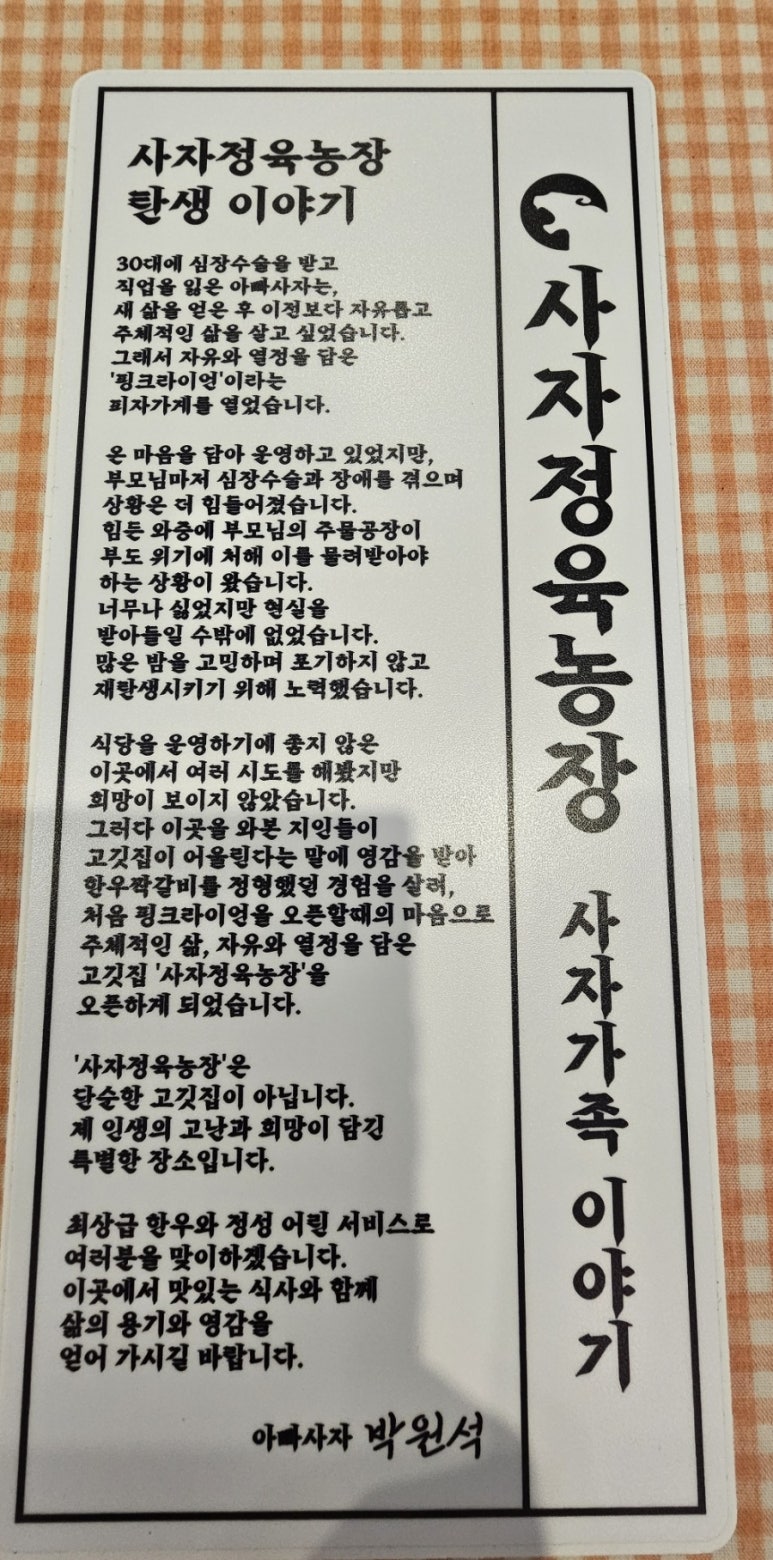 사자정육농장
탄생 이야기
30대에 심장수술을 받고
직업을 잃은 아빠사자는,
새 삶을 얻은 후 이전보다 자유롭고
주체적인 삶을 살고 싶었습니다.
그래서 자유와 열정을 담은
'핑크라이언'이라는
피자가게를 열었습니다.
온 마음을 담아 운영하고 있었지만,
부모님마저 심장수술과 장애를 겪으며
상황은 더 힘들어졌습니다.
힘든 와중에 부모님의 주물공장이
부도 위기에 처해 이를 물려받아야
하는 상황이 왔습니다.
너무나 싫었지만 현실을
받아들일 수밖에 없었습니다.
많은 밤을 고민하며 포기하지 않고
재탄생시키기 위해 노력했습니다.
식당을 운영하기에 좋지 않은
이곳에서 여러 시도를 해봤지만
희망이 보이지 않았습니다.
그러다 이곳을 와본 지인들이
고깃집이 어울린다는 말에 영감을 받아
한우짝갈비를 정형했던 경험을 살려,
처음 핑크라이언을 오픈할때의 마음으로
주체적인 삶, 자유와 열정을 담은
고깃집 '사자정육농장'을
오픈하게 되었습니다.
'사자정육농장'은
단순한 고깃집이 아닙니다.
제 인생의 고난과 희망이 담긴
특별한 장소입니다.
최상급 한우와 정성 어린 서비스로
여러분을 맞이하겠습니다.
이곳에서 맛있는 식사와 함께
삶의 용기와 영감을
얻어 가시길 바랍니다.
아빠사자 박원석
사자정육농장 사자가족 이야기